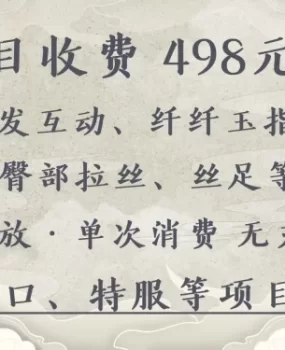 目收费 498元
发互动、纤纤玉指
臀部拉丝、丝足等
放·单次消费 无
口、特服等项目